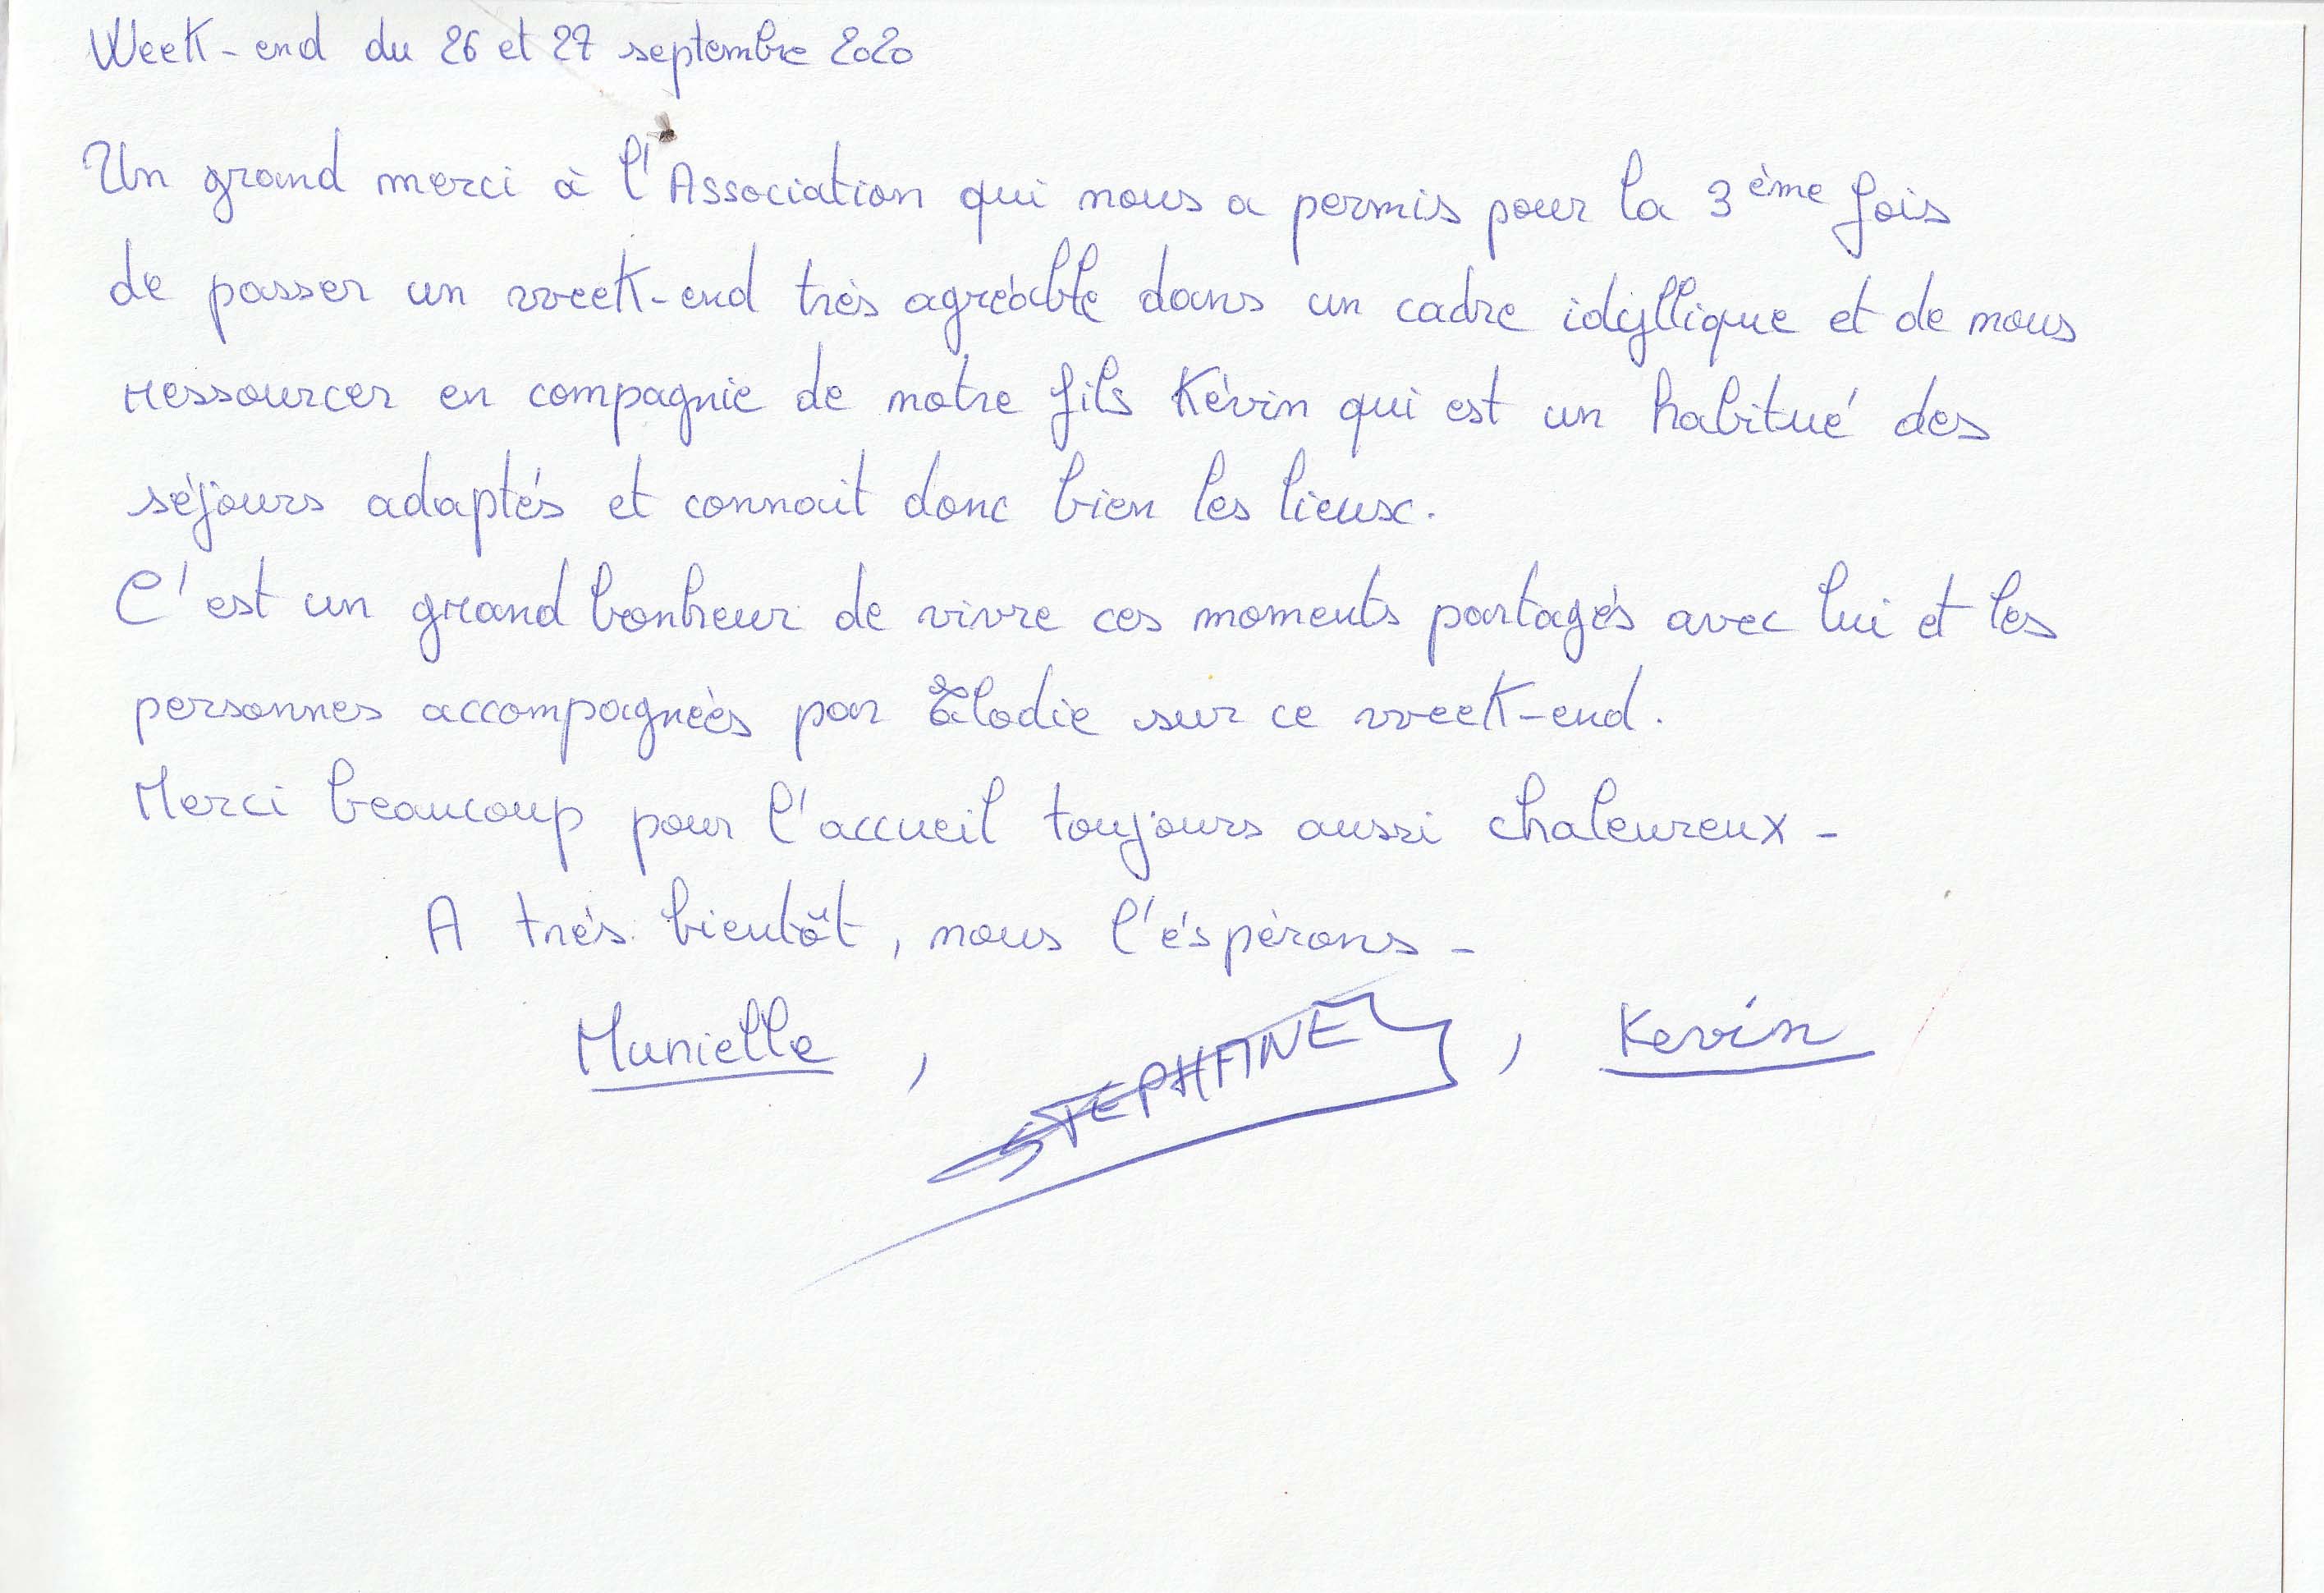 Week-end du 26 et 27 septembre 2020
Un grand merci à l'Association qui nous a permis pour la 3ème fois
de passer un week-end très agréable dans un cadre idyllique et de nous
ressourcer en compagnie de notre fils Kévin qui est un habitué des
séjours adaptés et connait donc bien les lieux.
C'est un grand bonheur de vivre ces moments partagés avec lui et les
personnes accompagnées par Elodie sur ce week-end.
Merci beaucoup pour l'accueil toujours aussi chaleureux -
A très bientôt, nous l'éspérons -
Murielle , STEPHANE , Kevin